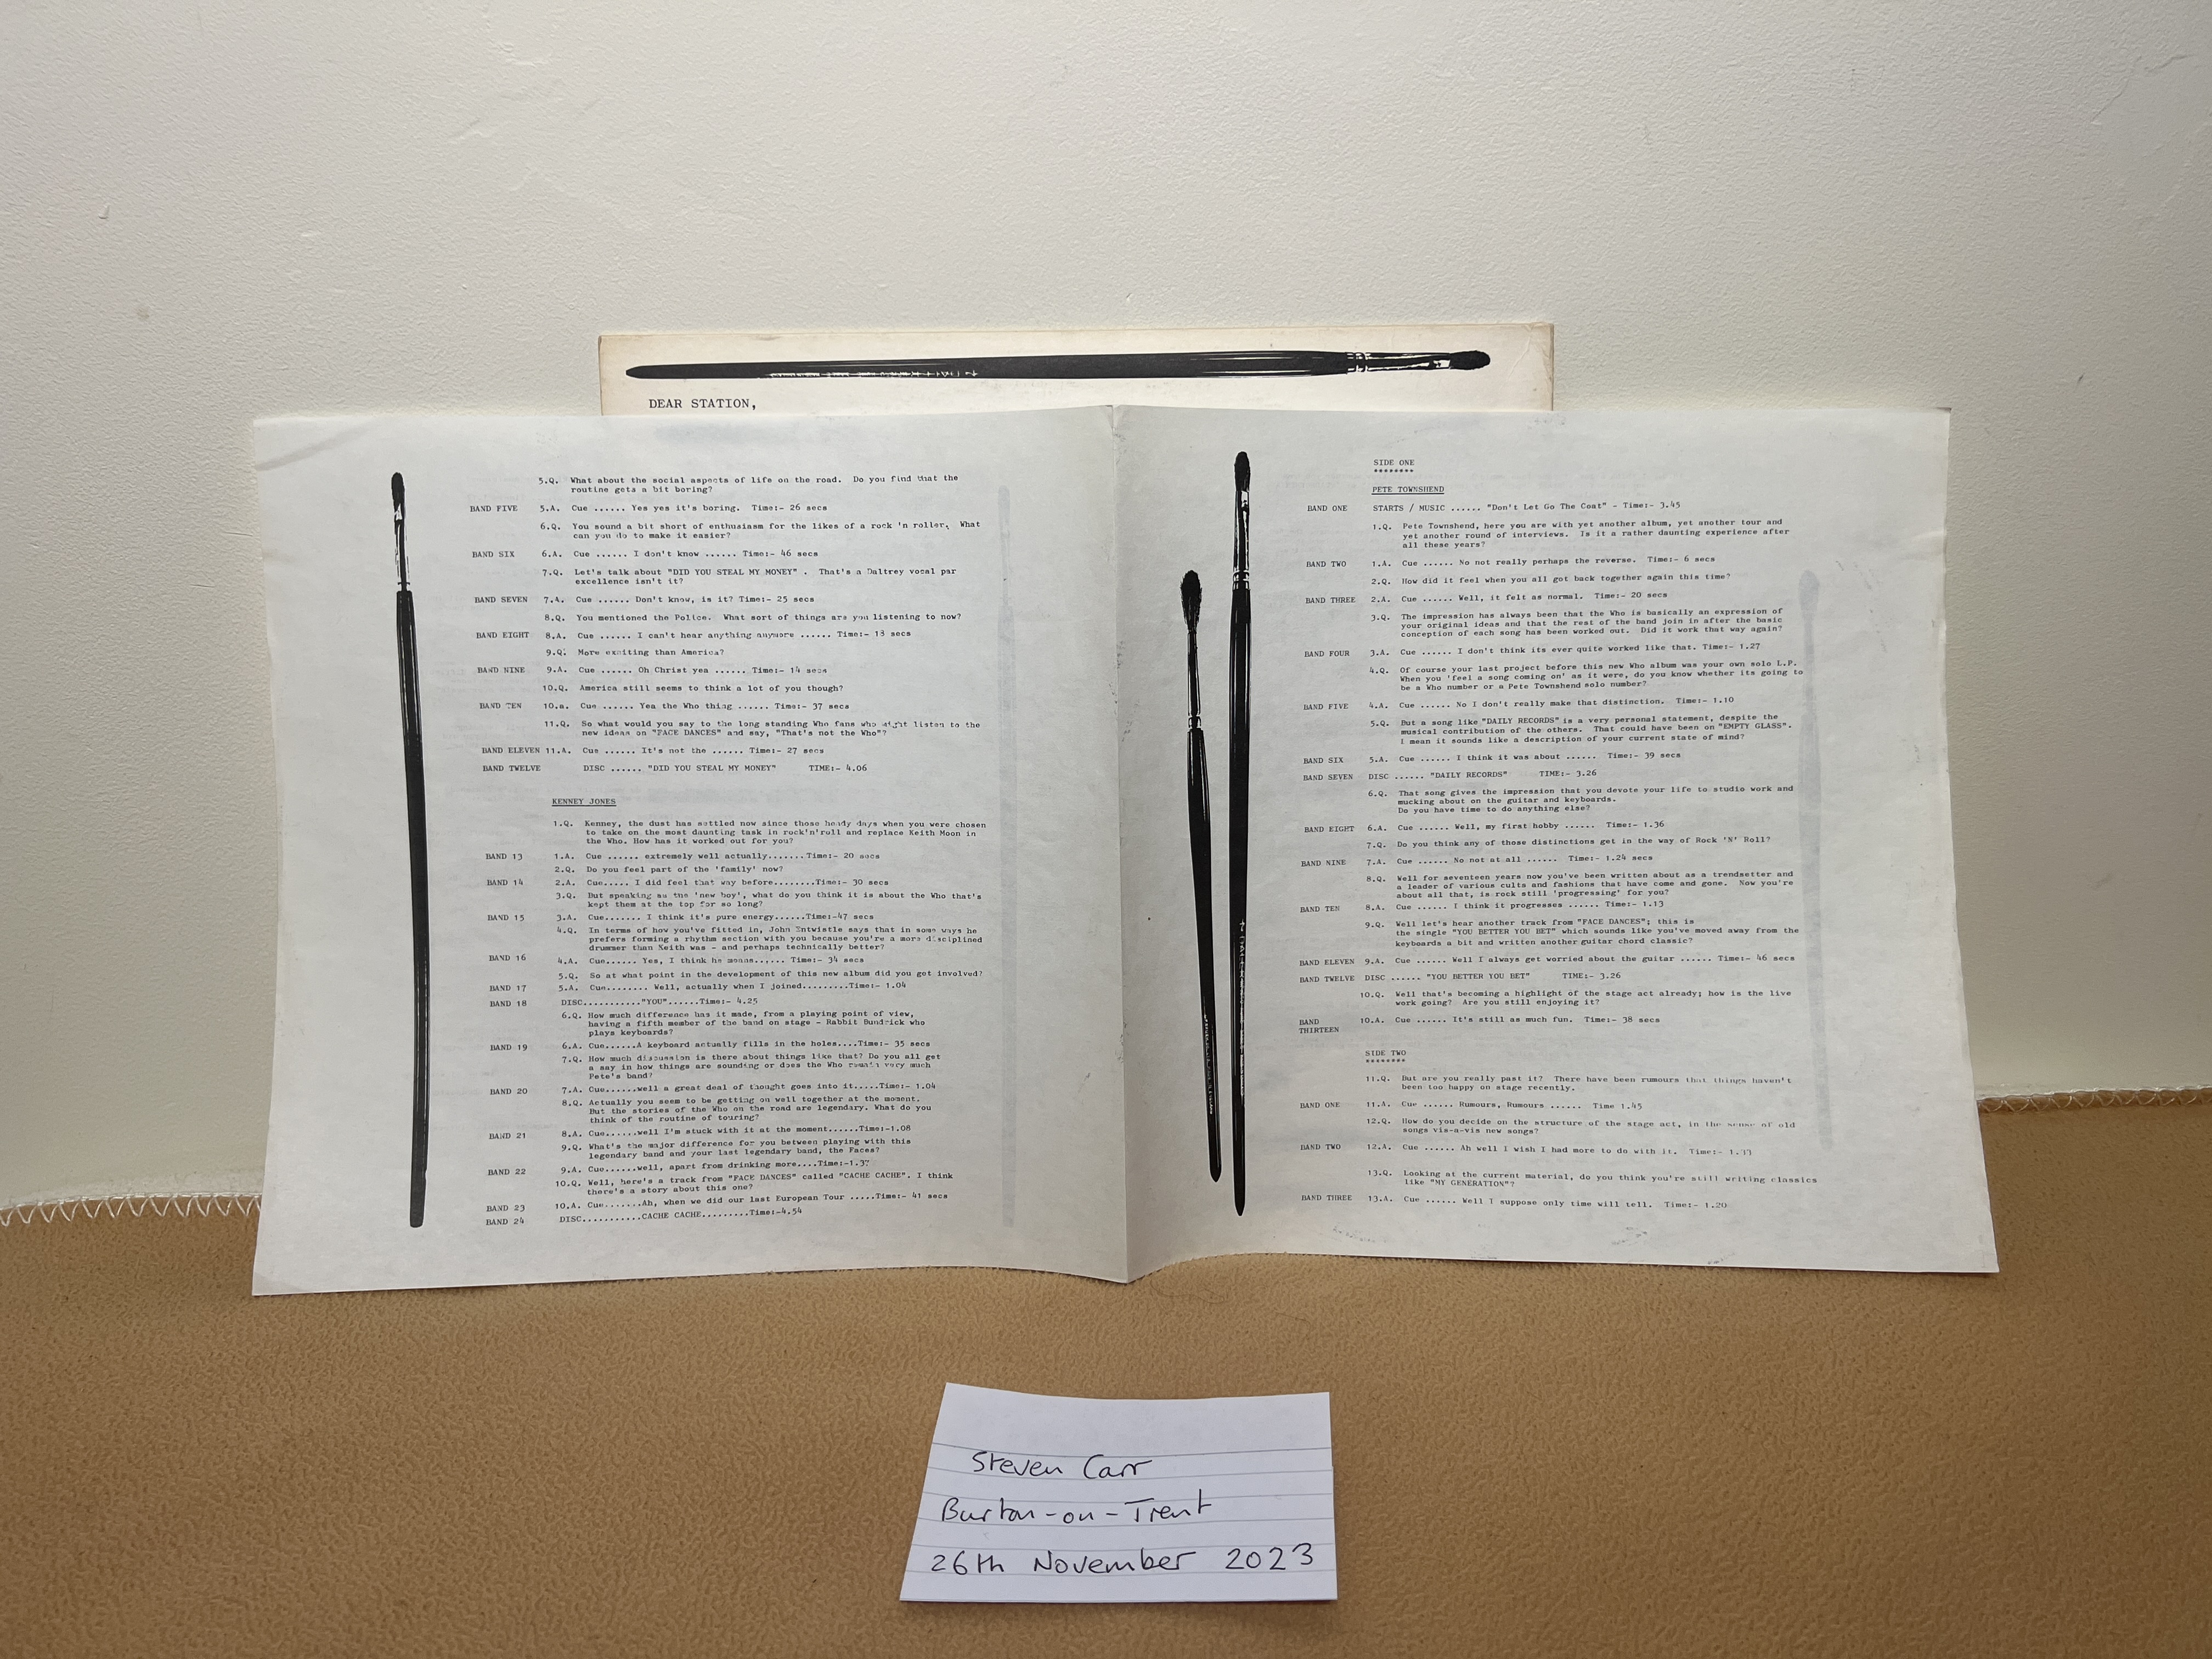 DEAR STATION,
5.Q. What about the social aspects of life on the road. Do you find that the
routine gets a bit boring?
BAND FIVE 5.A. Cue ...... Yes yes it's boring. Time:- 26 secs
6.Q. You sound a bit short of enthusiasm for the likes of a rock 'n roller. What
can you do to make it easier?
BAND SIX 6.A. Cue ...... I don't know ...... Time:- 46 secs
7.Q. Let's talk about "DID YOU STEAL MY MONEY" . That's a Daltrey vocal par
excellence isn't it?
BAND SEVEN 7.A. Cue ...... Don't know, is it? Time:- 25 secs
8.Q. You mentioned the Police. What sort of things are you listening to now?
BAND EIGHT 8.A. Cue ...... I can't hear anything anymore ...... Time:- 13 secs
9.Q. More exciting than America?
BAND NINE 9.A. Cue ...... Oh Christ yea ...... Time:- 14 secs
10.Q. America still seems to think a lot of you though?
BAND TEN 10.a. Cue ...... Yea the Who thing ...... Time:- 37 secs
11.Q. So what would you say to the long standing Who fans who might listen to the
new ideas on "FACE DANCES" and say, "That's not the Who"?
BAND ELEVEN 11.A. Cue ...... It's not the ...... Time:- 27 secs
BAND TWELVE DISC ...... "DID YOU STEAL MY MONEY" TIME:- 4.06
KENNEY JONES
1.Q. Kenney, the dust has settled now since those heady days when you were chosen
to take on the most daunting task in rock'n'roll and replace Keith Moon in
the Who. How has it worked out for you?
BAND 13 1.A. Cue ...... extremely well actually.......Time:- 20 secs
2.Q. Do you feel part of the 'family' now?
BAND 14 2.A. Cue..... I did feel that way before........Time:- 30 secs
3.Q. But speaking as the 'new boy', what do you think it is about the Who that's
kept them at the top for so long?
BAND 15 3.A. Cue....... I think it's pure energy......Time:-47 secs
4.Q. In terms of how you've fitted in, John Entwistle says that in some ways he
prefers forming a rhythm section with you because you're a more disciplined
drummer than Keith was - and perhaps technically better?
BAND 16 4.A. Cue...... Yes, I think he means...... Time:- 34 secs
5.Q. So at what point in the development of this new album did you get involved?
BAND 17 5.A. Cue........ Well, actually when I joined.........Time:- 1.04
BAND 18 DISC..........."YOU"......Time:- 4.25
6.Q. How much difference has it made, from a playing point of view,
having a fifth member of the band on stage - Rabbit Bundrick who
plays keyboards?
BAND 19 6.A. Cue......A keyboard actually fills in the holes....Time:- 35 secs
7.Q. How much discussion is there about things like that? Do you all get
a say in how things are sounding or does the Who remain very much
Pete's band?
BAND 20 7.A. Cue......well a great deal of thought goes into it.....Time:- 1.04
8.Q. Actually you seem to be getting on well together at the moment.
But the stories of the Who on the road are legendary. What do you
think of the routine of touring?
BAND 21 8.A. Cue......well I'm stuck with it at the moment......Time:-1.08
9.Q. What's the major difference for you between playing with this
legendary band and your last legendary band, the Faces?
BAND 22 9.A. Cue......well, apart from drinking more....Time:-1.37
10.Q. Well, here's a track from "FACE DANCES" called "CACHE CACHE". I think
there's a story about this one?
BAND 23 10.A. Cue.......Ah, when we did our last European Tour .....Time:- 41 secs
BAND 24 DISC...........CACHE CACHE.........Time:-4.54
SIDE ONE
********
PETE TOWNSHEND
BAND ONE STARTS / MUSIC ...... "Don't Let Go The Coat" - Time:- 3.45
1.Q. Pete Townshend, here you are with yet another album, yet another tour and
yet another round of interviews. Is it a rather daunting experience after
all these years?
BAND TWO 1.A. Cue ...... No not really perhaps the reverse. Time:- 6 secs
2.Q. How did it feel when you all got back together again this time?
BAND THREE 2.A. Cue ...... Well, it felt as normal. Time:- 20 secs
3.Q. The impression has always been that the Who is basically an expression of
your original ideas and that the rest of the band join in after the basic
conception of each song has been worked out. Did it work that way again?
BAND FOUR 3.A. Cue ...... I don't think its ever quite worked like that. Time:- 1.27
4.Q. Of course your last project before this new Who album was your own solo L.P.
When you 'feel a song coming on' as it were, do you know whether its going to
be a Who number or a Pete Townshend solo number?
BAND FIVE 4.A. Cue ...... No I don't really make that distinction. Time:- 1.10
5.Q. But a song like "DAILY RECORDS" is a very personal statement, despite the
musical contribution of the others. That could have been on "EMPTY GLASS".
I mean it sounds like a description of your current state of mind?
BAND SIX 5.A. Cue ...... I think it was about ...... Time:- 39 secs
BAND SEVEN DISC ...... "DAILY RECORDS" TIME:- 3.26
6.Q. That song gives the impression that you devote your life to studio work and
mucking about on the guitar and keyboards.
Do you have time to do anything else?
BAND EIGHT 6.A. Cue ...... Well, my first hobby ...... Time:- 1.36
7.Q. Do you think any of those distinctions get in the way of Rock 'N' Roll?
BAND NINE 7.A. Cue ...... No not at all ...... Time:- 1.24 secs
8.Q. Well for seventeen years now you've been written about as a trendsetter and
a leader of various cults and fashions that have come and gone. Now you're
about all that, is rock still 'progressing' for you?
BAND TEN 8.A. Cue ...... I think it progresses ...... Time:- 1.13
9.Q. Well let's hear another track from "FACE DANCES"; this is
the single "YOU BETTER YOU BET" which sounds like you've moved away from the
keyboards a bit and written another guitar chord classic?
BAND ELEVEN 9.A. Cue ...... Well I always get worried about the guitar ...... Time:- 46 secs
BAND TWELVE DISC ...... "YOU BETTER YOU BET" TIME:- 3.26
10.Q. Well that's becoming a highlight of the stage act already; how is the live
work going? Are you still enjoying it?
BAND THIRTEEN 10.A. Cue ...... It's still as much fun. Time:- 38 secs
SIDE TWO
********
11.Q. But are you really past it? There have been rumours that things haven't
been too happy on stage recently.
BAND ONE 11.A. Cue ...... Rumours, Rumours ...... Time 1.45
12.Q. How do you decide on the structure of the stage act, in the sense of old
songs vis-a-vis new songs?
BAND TWO 12.A. Cue ...... Ah well I wish I had more to do with it. Time:- 1.33
13.Q. Looking at the current material, do you think you're still writing classics
like "MY GENERATION"?
BAND THREE 13.A. Cue ...... Well I suppose only time will tell. Time:- 1.20
Steven Carr
Burton-on-Trent
26th November 2023